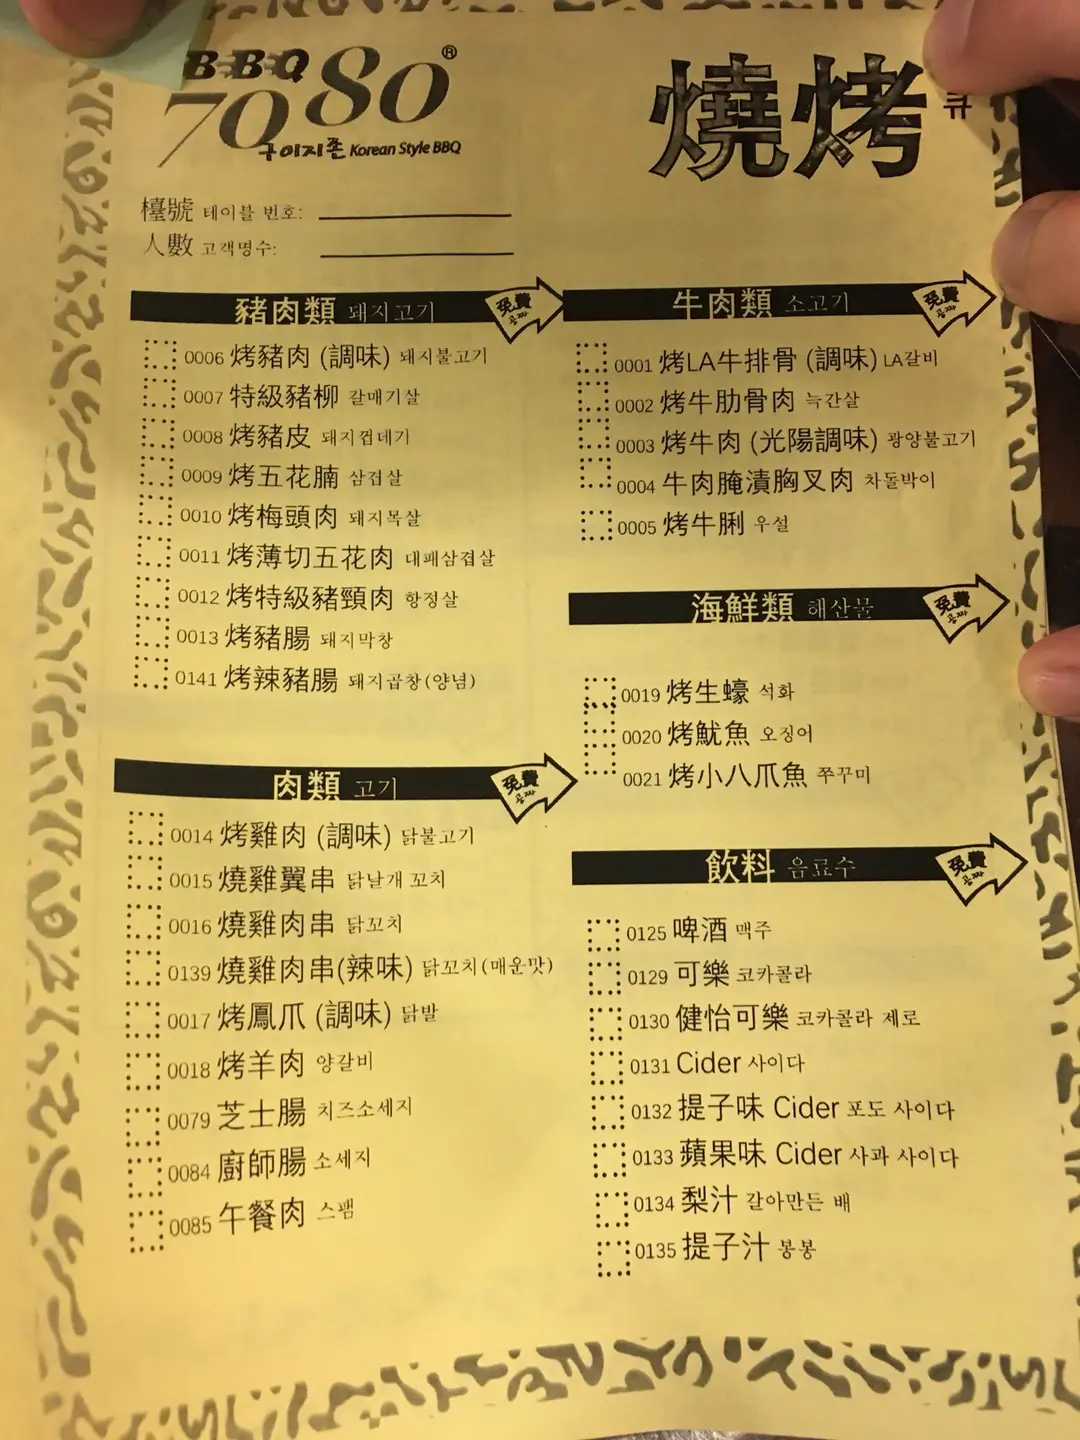 BBQ
7080®
구이지존 Korean Style BBQ
燒烤
큐
檯號 테이블 번호:
人數 고객명수:
豬肉類 돼지고기 免費 공짜
0006 烤豬肉 (調味) 돼지불고기
0007 特級豬柳 갈매기살
0008 烤豬皮 돼지껍데기
0009 烤五花腩 삼겹살
0010 烤梅頭肉 돼지목살
0011 烤薄切五花肉 대패삼겹살
0012 烤特級豬頸肉 항정살
0013 烤豬腸 돼지막창
0141 烤辣豬腸 돼지곱창(양념)
肉類 고기 免費 공짜
0014 烤雞肉 (調味) 닭불고기
0015 燒雞翼串 닭날개 꼬치
0016 燒雞肉串 닭꼬치
0139 燒雞肉串(辣味) 닭꼬치(매운맛)
0017 烤鳳爪 (調味) 닭발
0018 烤羊肉 양갈비
0079 芝士腸 치즈소세지
0084 廚師腸 소세지
0085 午餐肉 스팸
牛肉類 소고기 免費 공짜
0001 烤LA牛排骨 (調味) LA갈비
0002 烤牛肋骨肉 늑간살
0003 烤牛肉 (光陽調味) 광양불고기
0004 牛肉腌漬胸叉肉 차돌박이
0005 烤牛脷 우설
海鮮類 해산물 免費 공짜
0019 烤生蠔 석화
0020 烤魷魚 오징어
0021 烤小八爪魚 쭈꾸미
飲料 음료수 免費 공짜
0125 啤酒 맥주
0129 可樂 코카콜라
0130 健怡可樂 코카콜라 제로
0131 Cider 사이다
0132 提子味 Cider 포도 사이다
0133 蘋果味 Cider 사과 사이다
0134 梨汁 갈아만든 배
0135 提子汁 봉봉